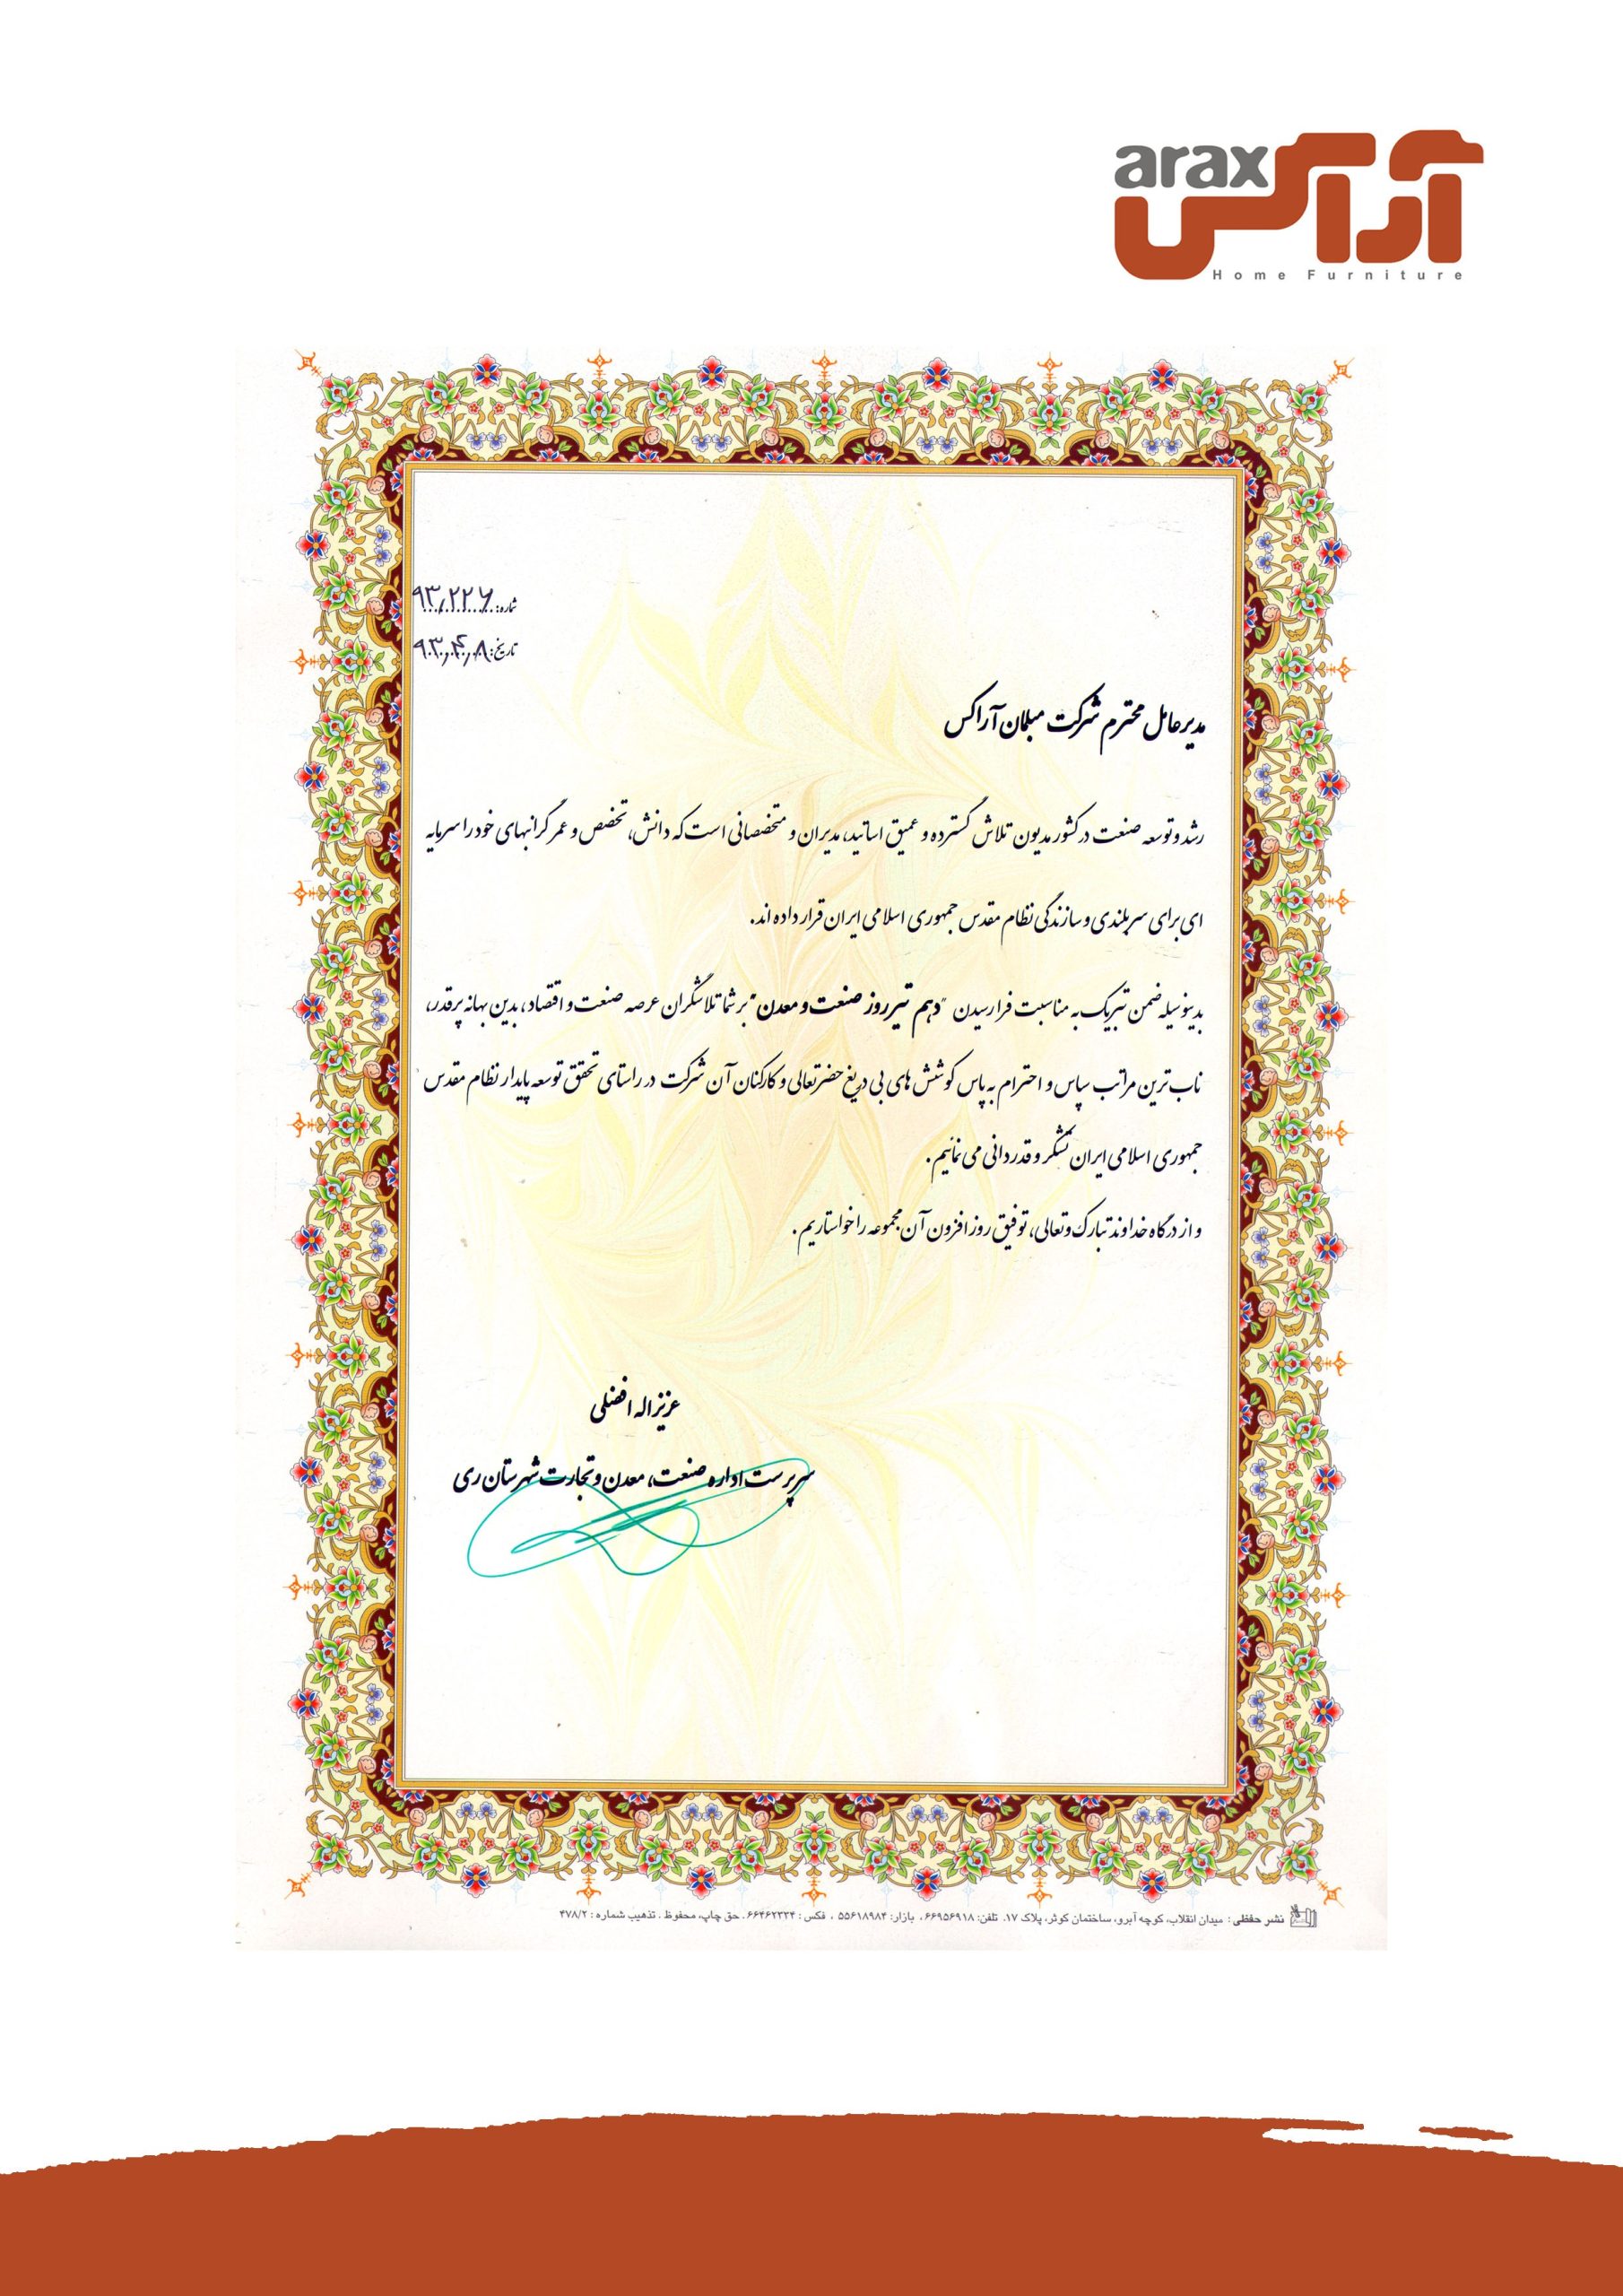 arax
آراکس
Home Furniture
شماره: ۹۳/۲۲۶
تاریخ: ۹۳/۴/۸
مدیرعامل محترم شرکت مبلمان آراکس
رشد و توسعه صنعت در کشور مدیون تلاش گسترده و عمیق اساتید، مدیران و متخصصانی است که دانش، تخصص و عمر گرانبهای خود را سرمایه
ای برای سربلندی و سازندگی نظام مقدس جمهوری اسلامی ایران قرار داده اند.
بدینوسیله ضمن تبریک به مناسبت فرارسیدن "دهم تیر روز صنعت و معدن" بر شما تلاشگران عرصه صنعت و اقتصاد، بدین بهانه پرقدر،
ناب ترین مراتب سپاس و احترام به پاس کوشش های بی دریغ حضرتعالی و کارکنان آن شرکت در راستای تحقق توسعه پایدار نظام مقدس
جمهوری اسلامی ایران تشکر و قدردانی می نمائیم.
و از درگاه خداوند تبارک و تعالی، توفیق روز افزون آن مجموعه را خواستاریم.
عزیزاله افضلی
سرپرست اداره صنعت، معدن و تجارت شهرستان ری
نشر حفظی : میدان انقلاب، کوچه آبرو، ساختمان کوثر، پلاک ۱۷. تلفن: ۶۶۹۵۶۹۱۸، بازار: ۵۵۶۱۸۹۸۴ ، فکس : ۶۶۴۶۲۳۳۴ . حق چاپ، محفوظ . تذهیب شماره : ۴۷۸/۲